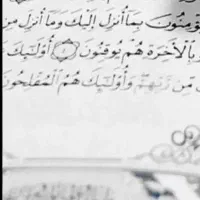 يُؤْمِنُونَ بِمَآ أُنزِلَ إِلَيْكَ وَمَآ أُنزِلَ مِن
بِٱلْأَخِرَةِ هُمْ يُوقِنُونَ أُو۟لَٰٓئِكَ
مِّن رَّبِّهِمْ وَأُو۟لَٰٓئِكَ هُمُ ٱلْمُفْلِحُونَ